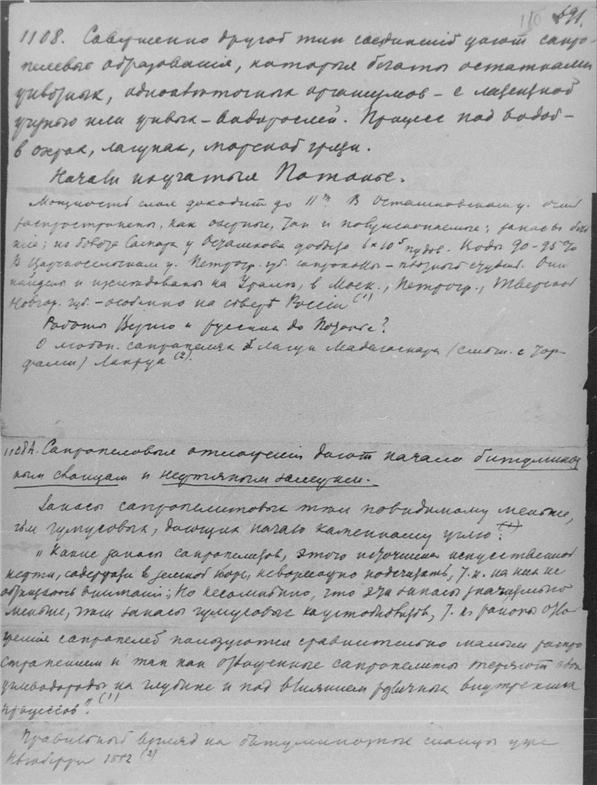 110 591.
1108. Совершенно другой тип соединений дают сапро-
пелевые образования, которые богаты остатками
животных, одноклеточных организмов – с
или живых – водорослей. Процесс под водой –
в озерах, лагунах, морской грязи.
Начали изучаться Потонье.
Мощность слоя доходит до 11 m. В Осташковском у. очень
распространены, как озерные, так и ; запасы
; из озера у Осташкова 6×10⁵ пудов. Воды 90–95%
В Царскосельском у. Петрогр. губ. сапропель – студень. Они
найдены и исследованы на Урале, в Моск., Петрогр., Тверской
Новгор. губ. – особенно на севере России (1)
Работы и русских до Потонье?
О любоп. сапропелях лагун Мадагаскара (смеш. с тор-
фами) Лакруа (2).
1108A. Сапропелевые отложения дают начало битуминоз-
ным сланцам и нефтяным залежам.
Запасы сапропелитовых тел повидимому меньше,
чем гумусовых, дающих начало каменному углю.
„Какие запасы сапропелитов, этого источника искусственной
нефти, содержатся в земной коре, невозможно подсчитать, т. к. на них не
обращалось внимания; но несомненно, что эти запасы значительно
меньше, чем запасы гумусовых каустобиолитов, т. к. районы отло-
жения сапропелей пользуются сравнительно малым распро-
странением и так как сапропелиты теряют свои
углеводороды на глубине и под влиянием различных внутренних
процессов". (1)
Правильный взгляд на битуминозные сланцы уже
1882 (2)